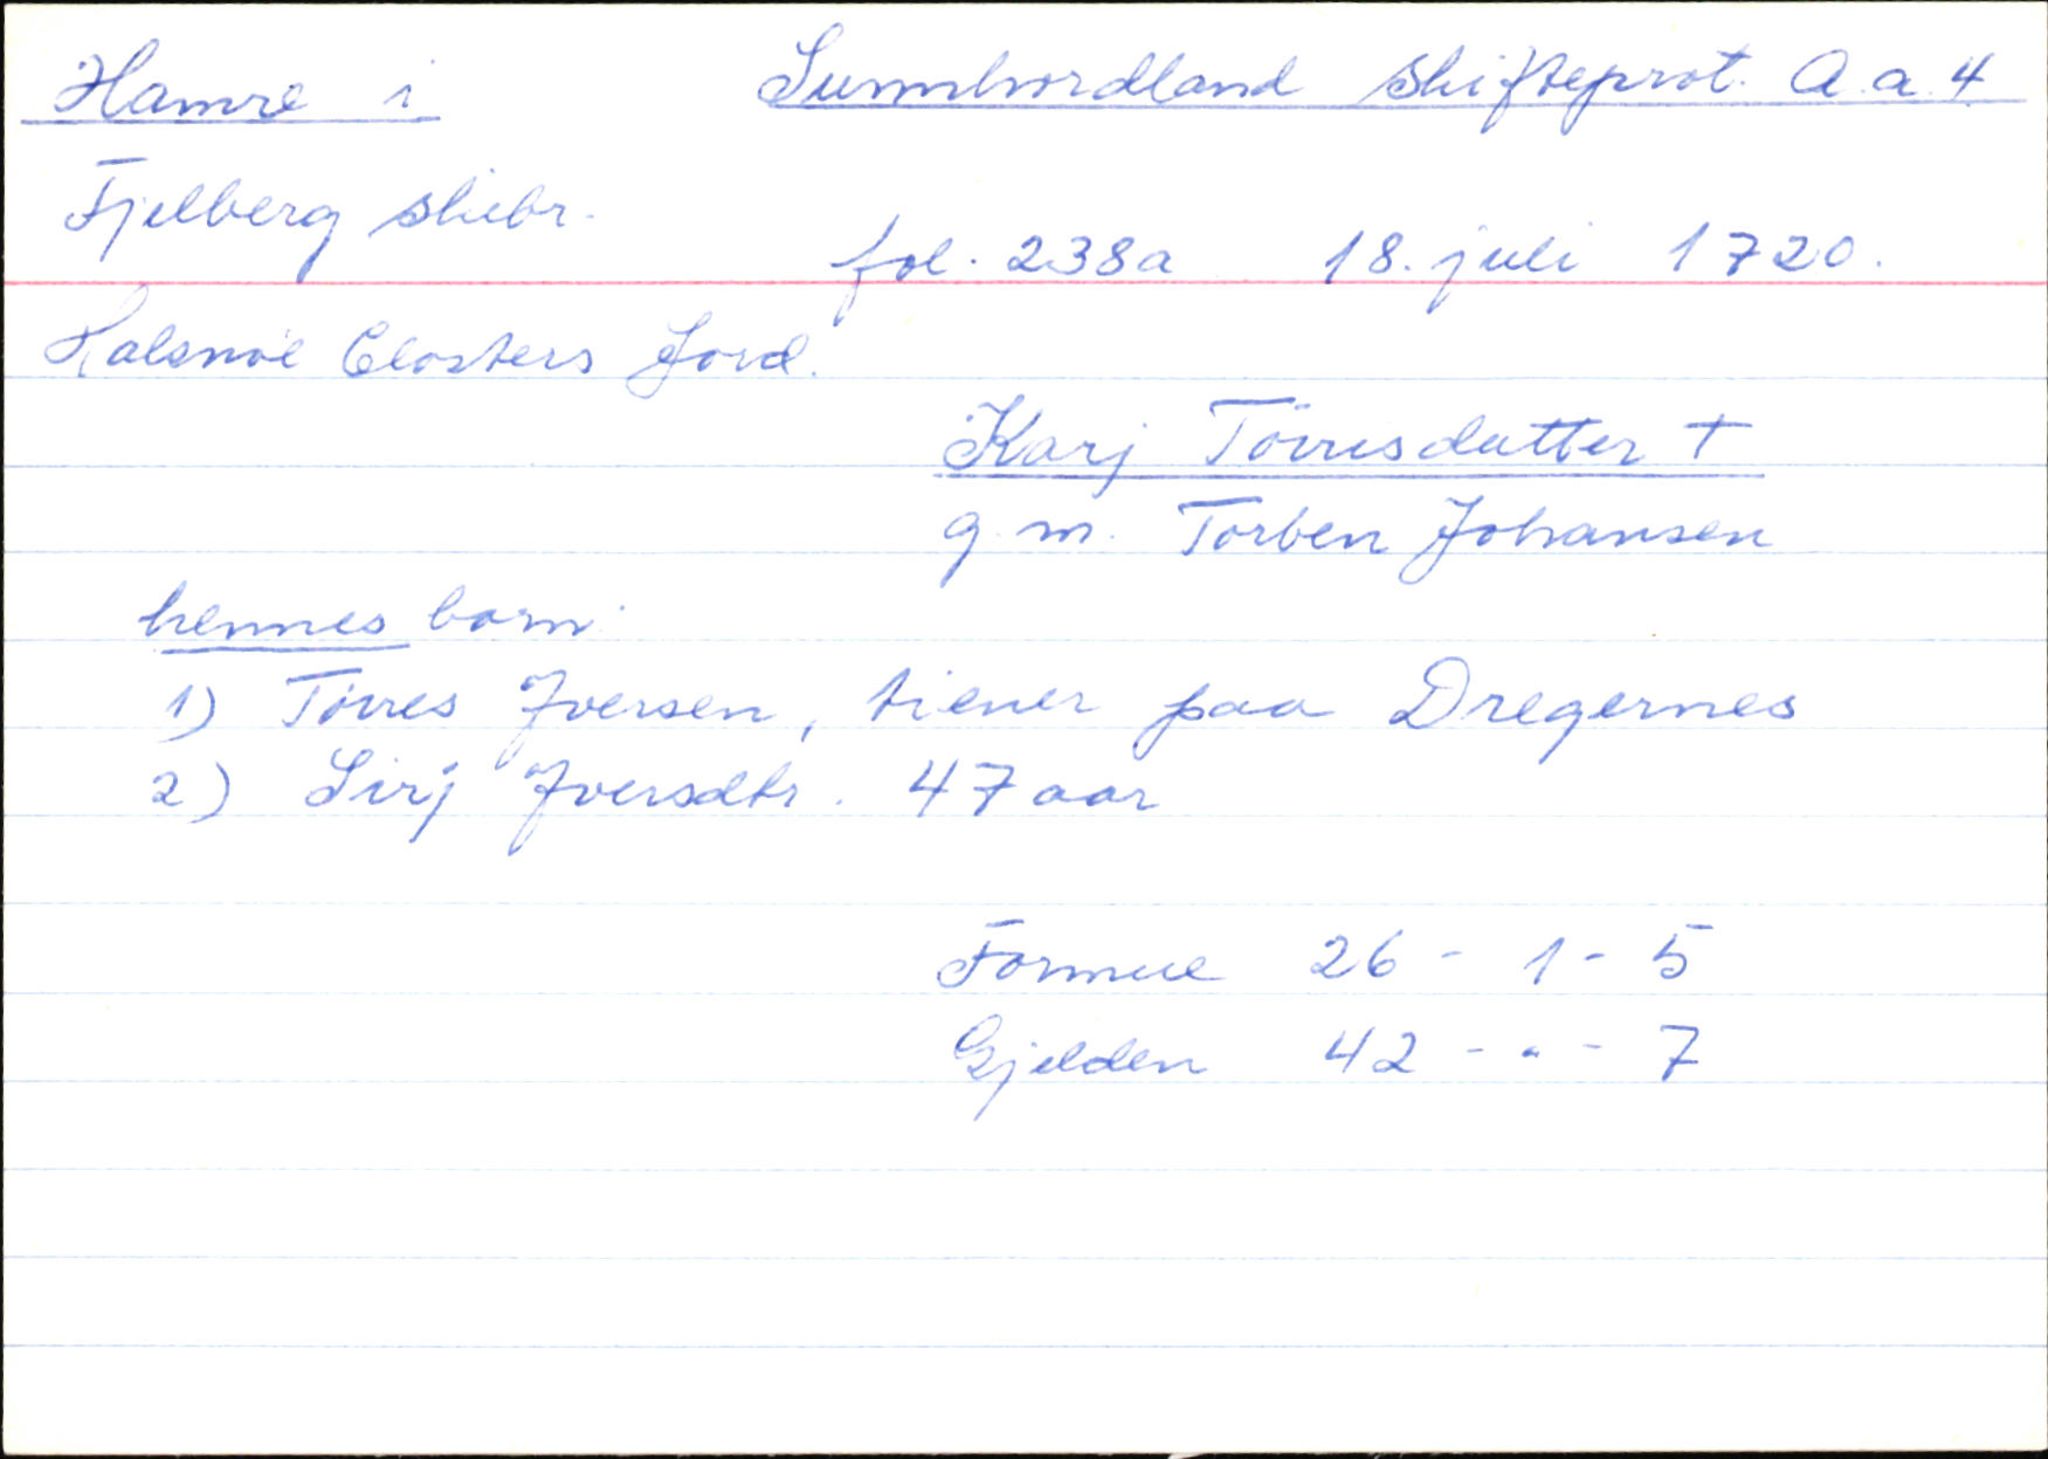 Hamre i Sunnhordland Skifteprot. A.a.4
Fjelberg skibr.
fol. 238a 18. juli 1720.
Halsnöe Closters Jord.
Karj Törrisdatter †
g. m. Torben Johansen
hennes barn:
1) Törres Iversen, tiener paa Dregernes
2) Sirj Iversdtr. 47 aar
Formue 26 - 1 - 5
Gjelden 42 - " - 7